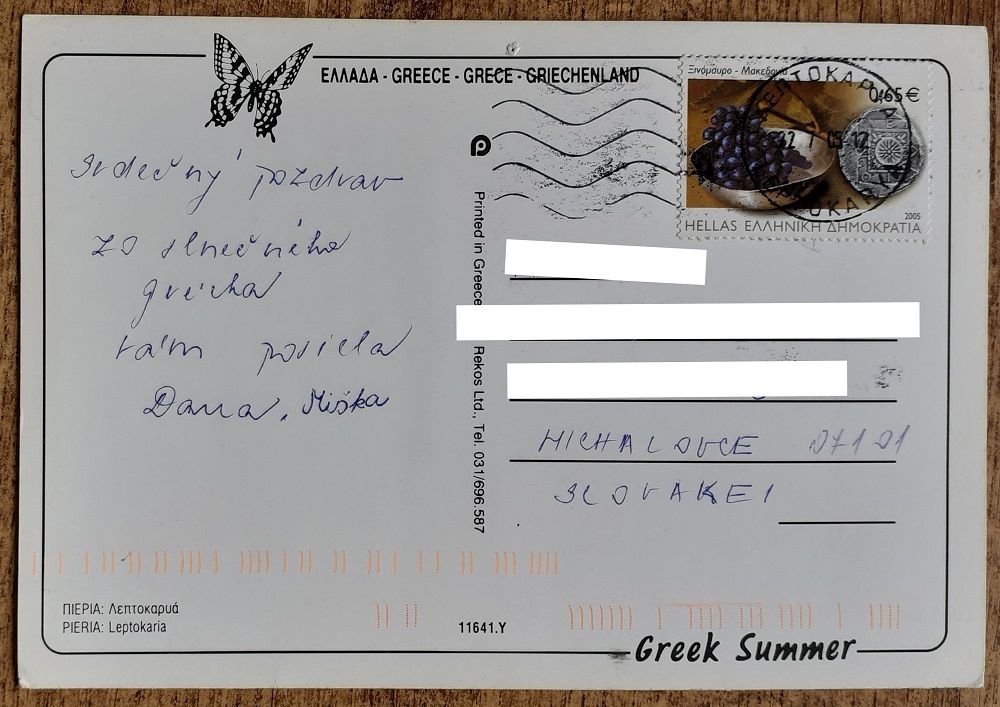 ΕΛΛΑΔΑ - GREECE - GRECE - GRIECHENLAND
Ξινόμαυρο - Μακεδονία
0,65€
ΛΕΠΤΟΚΑΡΥΑ
22 7 05 12
2005
HELLAS ΕΛΛΗΝΙΚΗ ΔΗΜΟΚΡΑΤΙΑ
Srdečný pozdrav
zo slnečného
grécka
vám posiela
Dana, Miška
Printed in Greece
Rekos Ltd., Tel. 031/696.587
MICHALOVCE 07101
SLOVAKEI
ΠΙΕΡΙΑ: Λεπτοκαρυά
PIERIA: Leptokaria
11641.Y
Greek Summer